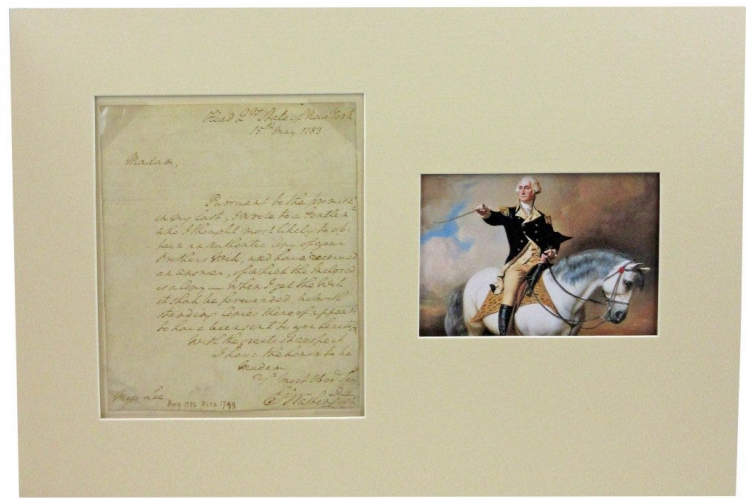 Head Qrs State of New York
15th May 1783
Madam,
Pursuant to the promise
in my last, I wrote to a Gentleman
who I thought most likely to ob-
tain an authentic copy of your
Brothers Will, and have received
an answer, of which the inclosed
is a Copy — When I get the Will
it shall be forwarded notwith
standing copies thereof appear
to have been sent to you
With the greatest respect
I have the honor to be
Madam
Yr most Obed Ser
Go Washington
Miss Lee
Born 1732 Died 1799